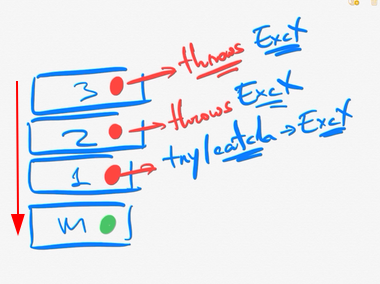 3 throws ExcX
2 throws ExcX
1 try/catch → ExcX
m